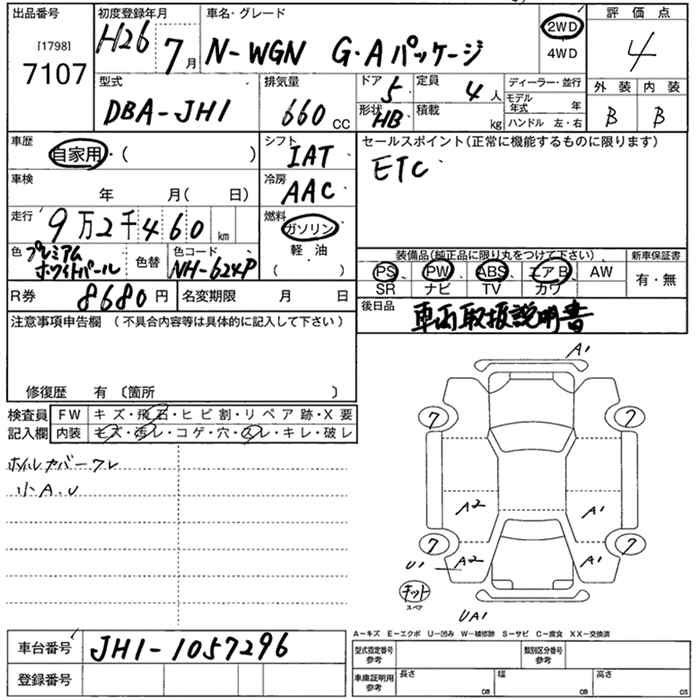 出品番号 初度登録年月 車名・グレード 評価点
[1798]
7107 H26 7月 N-WGN G・Aパッケージ 2WD 4WD 4
型式 排気量 ドア 定員 ディーラー・並行 外装 内装
DBA-JH1 660 CC 5 4人 モデル年式 年 B B
形状 HB 積載 kg ハンドル 左・右
車歴 シフト セールスポイント(正常に機能するものに限ります)
自家用・( ) IAT ETC
車検 冷房
年 月( 日) AAC
走行 燃料
9万2千460km ガソリン
軽・油
( )
色 プレミアムホワイトパール 色替 色コード NH-624P
装備品(純正品に限り丸をつけて下さい) 新車保証書
PS PW ABS エアB AW 有・無
SR ナビ TV カワ
R券 8680円 名変期限 月 日
後日品 車両取扱説明書
注意事項申告欄 (不具合内容等は具体的に記入して下さい)
修復歴 有 〔箇所 〕
検査員 FW キズ・飛石・ヒビ割・リペア跡・X要
記入欄 内装 キズ・汚レ・コゲ・穴・スレ・キレ・破レ
ホイルカバークレ
小A.U
A1
7 7
A2 A1
7 7
U1 A2 A1
キット
スペア
UA1
A−キズ E−エクボ U−凹み W−補修跡 S−サビ C−腐食 XX−交換済
車台番号 JH1-1057296
登録番号
型式指定番号 参考 類別区分番号 参考
車庫証明用 参考 長さ cm 幅 cm 高さ cm